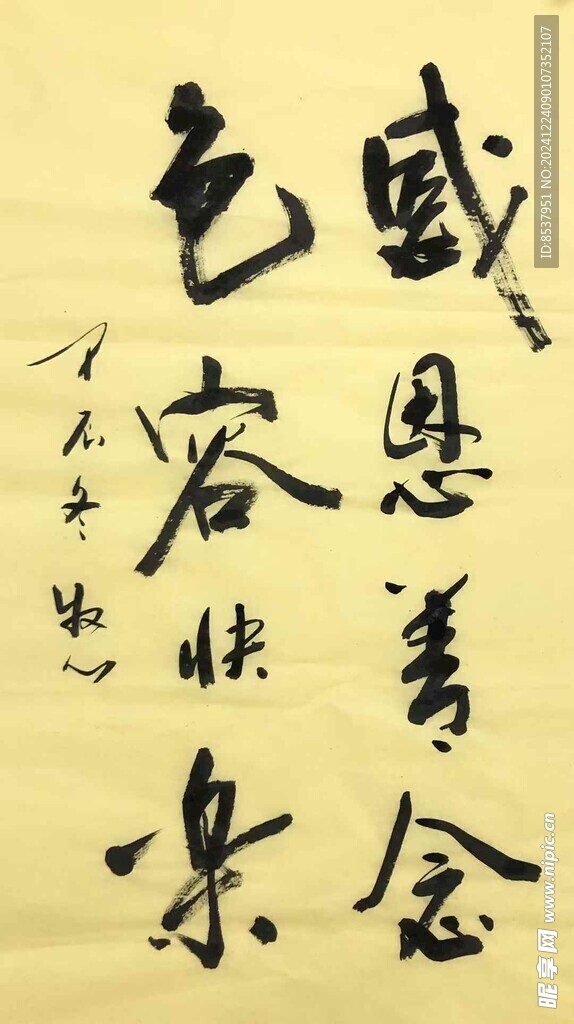 感恩善念
包容快樂
甲辰冬 牧心
ID:8537951 NO:20241224090107352107
昵享网 www.nipic.cn